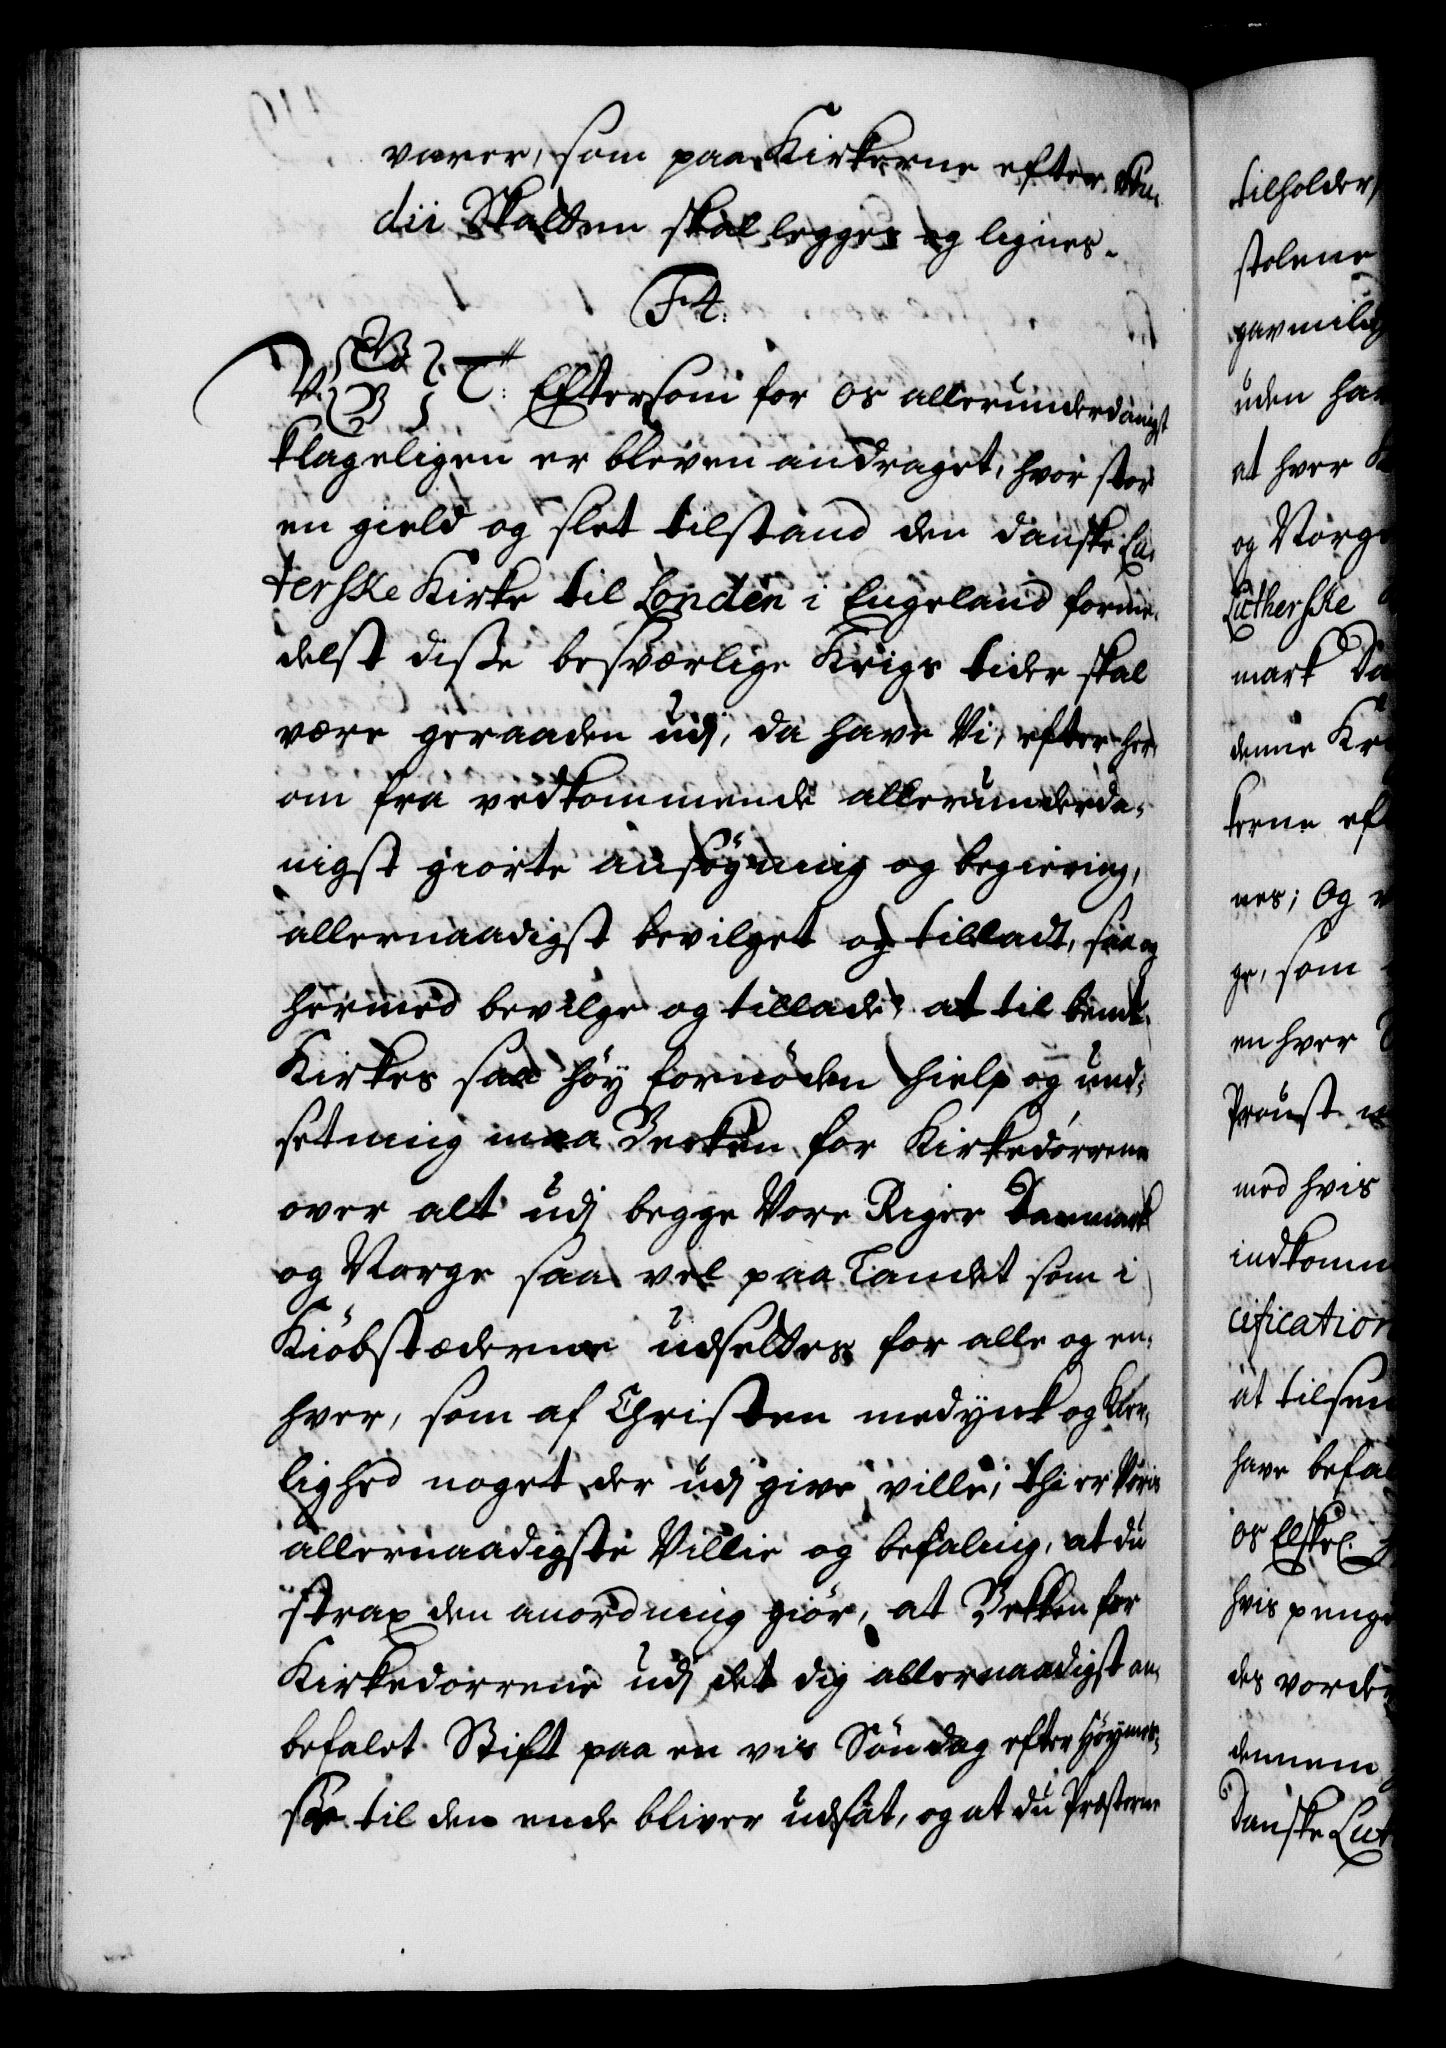 varer, som paa Kirkerne efter Stu-
dii Skatten skal legges og lignes.
F4.
V. G. T. Eftersom for os allerunderdanigst
klageligen er bleven andraget, hvor stor
en gield og slet tilstand den danske Lu-
terske Kirke til Londen i Engeland forme-
delst disse besværlige Krigs tider skal
være geraaden udj, da have Vi, efter her-
om fra vedkommende allerunderda-
nigst giorte ansøgning og begiering,
allernaadigst bevilget og tilladt, saa og
hermed bevilge og tillade, at til bemte
Kirkes saa høy fornöden hielp og und-
setning maa Becken for Kirkedörrene
over alt udj begge Vore Riger Danmark
og Norge saa vel paa Landet som i
Kiöbstæderne udsettes for alle og en-
hver, som af Christen medynk og Kier-
lighed noget der udj give ville; thi er Voris
allernaadigste Villie og befaling, at du
strax den anordning giör, at Becken for
Kirkedörrene udj det dig allernaadigst an-
befalet Stift paa en vis Söndag efter Höymes-
se til den ende bliver udsat, og at du Præsterne
tilholder,
stolene
gavmild
uden
at hver
og Norge
Lutherske
mark
denne
kerne
nes; og
ge, som
en hver
Proust
med hvis
indkomm
cification
at tilsen
have befal
os Elskel.
hvis penge
des vorder
dennem
Danske Lut